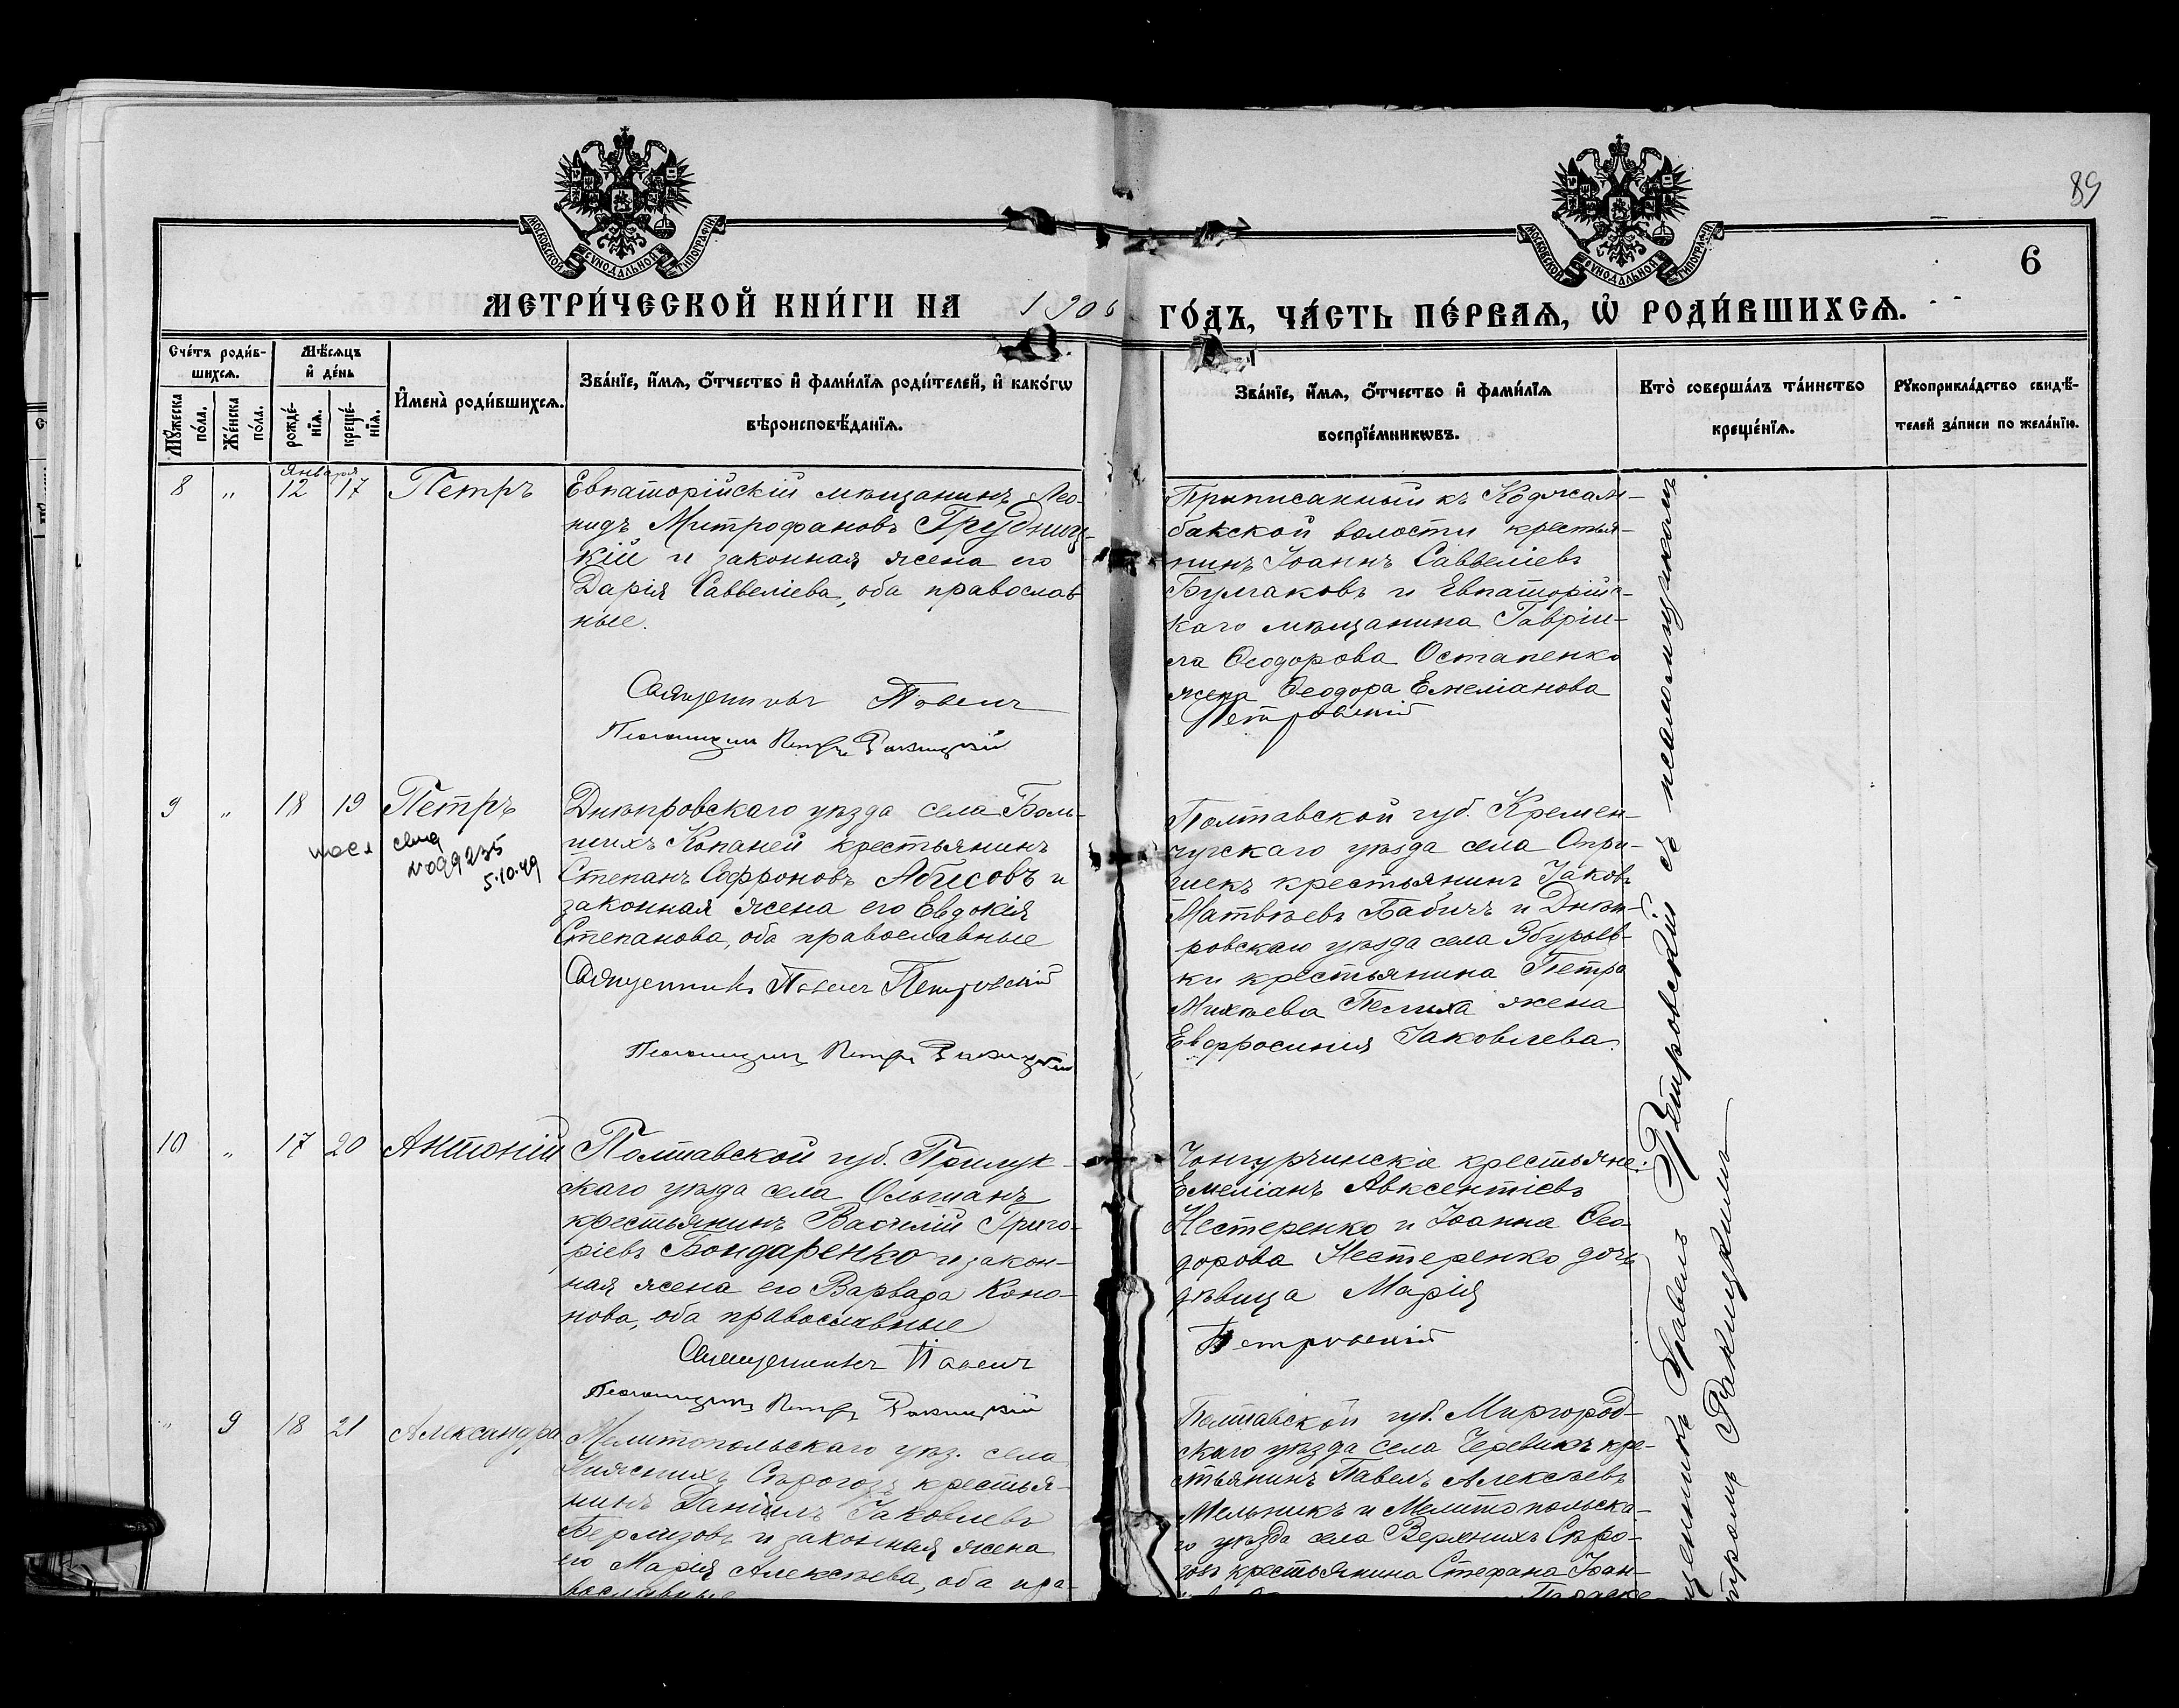 89
МОСКОВСКОЙ СѴНОДАЛЬНОЙ ТИПОГРАФІИ
МОСКОВСКОЙ СѴНОДАЛЬНОЙ ТИПОГРАФІИ
6
МЕТРИ́ЧЕСКОЙ КНИ́ГИ НА 1906 ГО́ДЪ, ЧА́СТЬ ПЕ́РВАѦ, Ѡ҆ РОДИ́ВШИХСѦ.
Сче́тъ роди́в-
шихсѧ.
Мꙋ́жеска
по́ла.
Же́нска
по́ла.
Мѣ́сѧцъ
и҆ де́нь
рожде́-
нїѧ.
креще́-
нїѧ.
И҆мена̀ роди́вшихсѧ.
Зва́нїе, и҆́мѧ, ѻ҆́тчество и҆ фами́лїѧ роди́телей, и҆ како́гѡ
вѣроисповѣ́данїѧ.
Зва́нїе, и҆́мѧ, ѻ҆́тчество и҆ фами́лїѧ
воспрїе́мникѡвъ.
Кто̀ соверша́лъ та́инство
креще́нїѧ.
Рꙋкоприкла́дство свидѣ́-
телей за́писи по жела́нїю.
Января
8 " 12 17 Петръ
Евпаторійскій мѣщанинъ Лео-
нидъ Митрофановъ Грудниц-
кій и законная жена его
Дарія Саввеліева, оба православ
ные.
Священникъ Павелъ
Петровскій
Псаломщикъ Петръ Ракицкій
Приписанный къ Коджам-
бакской волости крестья-
нинъ Іоаннъ Саввеліевъ
Булгаковъ и Евпаторійс-
каго мѣщанина Гавріи-
ла Ѳеодорова Остапенко
жена Ѳеодора Емеліанова
9 " 18 19 Петръ
5.10.49
Днѣпровскаго уѣзда села Боль-
шихъ Копаней крестьянинъ
Степанъ Софроновъ Абисовъ и
законная жена его Евдокія
Степанова, оба православные
Священникъ Павелъ Петровскій
Псаломщикъ Петръ Ракицкій
Полтавской губ. Кремен-
чугскаго уѣзда села Опри-
шекъ крестьянинъ Іаковъ
Матвѣевъ Бабичъ и Днѣп-
ровскаго уѣзда села Збурьев-
ки крестьянина Петра
Михѣева Пелиха жена
Евфросинія Іаковлева.
10 " 17 20 Антоній
Полтавской губ. Прилук-
скаго уѣзда села Ольшанъ
крестьянинъ Василій Григо-
ріевъ Бондаренко и закон-
ная жена его Варвара Коно-
нова, оба православные
Священникъ Павелъ
Петровскій
Псаломщикъ Петръ Ракицкій
Чонгурчинскіе крестьяне:
Емеліанъ Авксентіевъ
Нестеренко и Іоанна Ѳео-
дорова Нестеренко дочь
дѣвица Марія
" 9 18 21 Александра
Мелитопольскаго уѣз. села
Нижнихъ Сѣрогозъ крестья-
нинъ Даніилъ Іаковлевъ
и законная жена
его Марія Алексѣева, оба пра-
вославные
Полтавской губ. Миргород-
скаго уѣзда села Черевикъ кре-
стьянинъ Павелъ Алексѣевъ
Мельникъ и Мелитопольска-
го уѣзда села Верхнихъ Сѣро-
гозъ крестьянина Стефана Іоан-
Параске-
Павелъ Петровскій съ псаломщикомъ
Петромъ Ракицкимъ